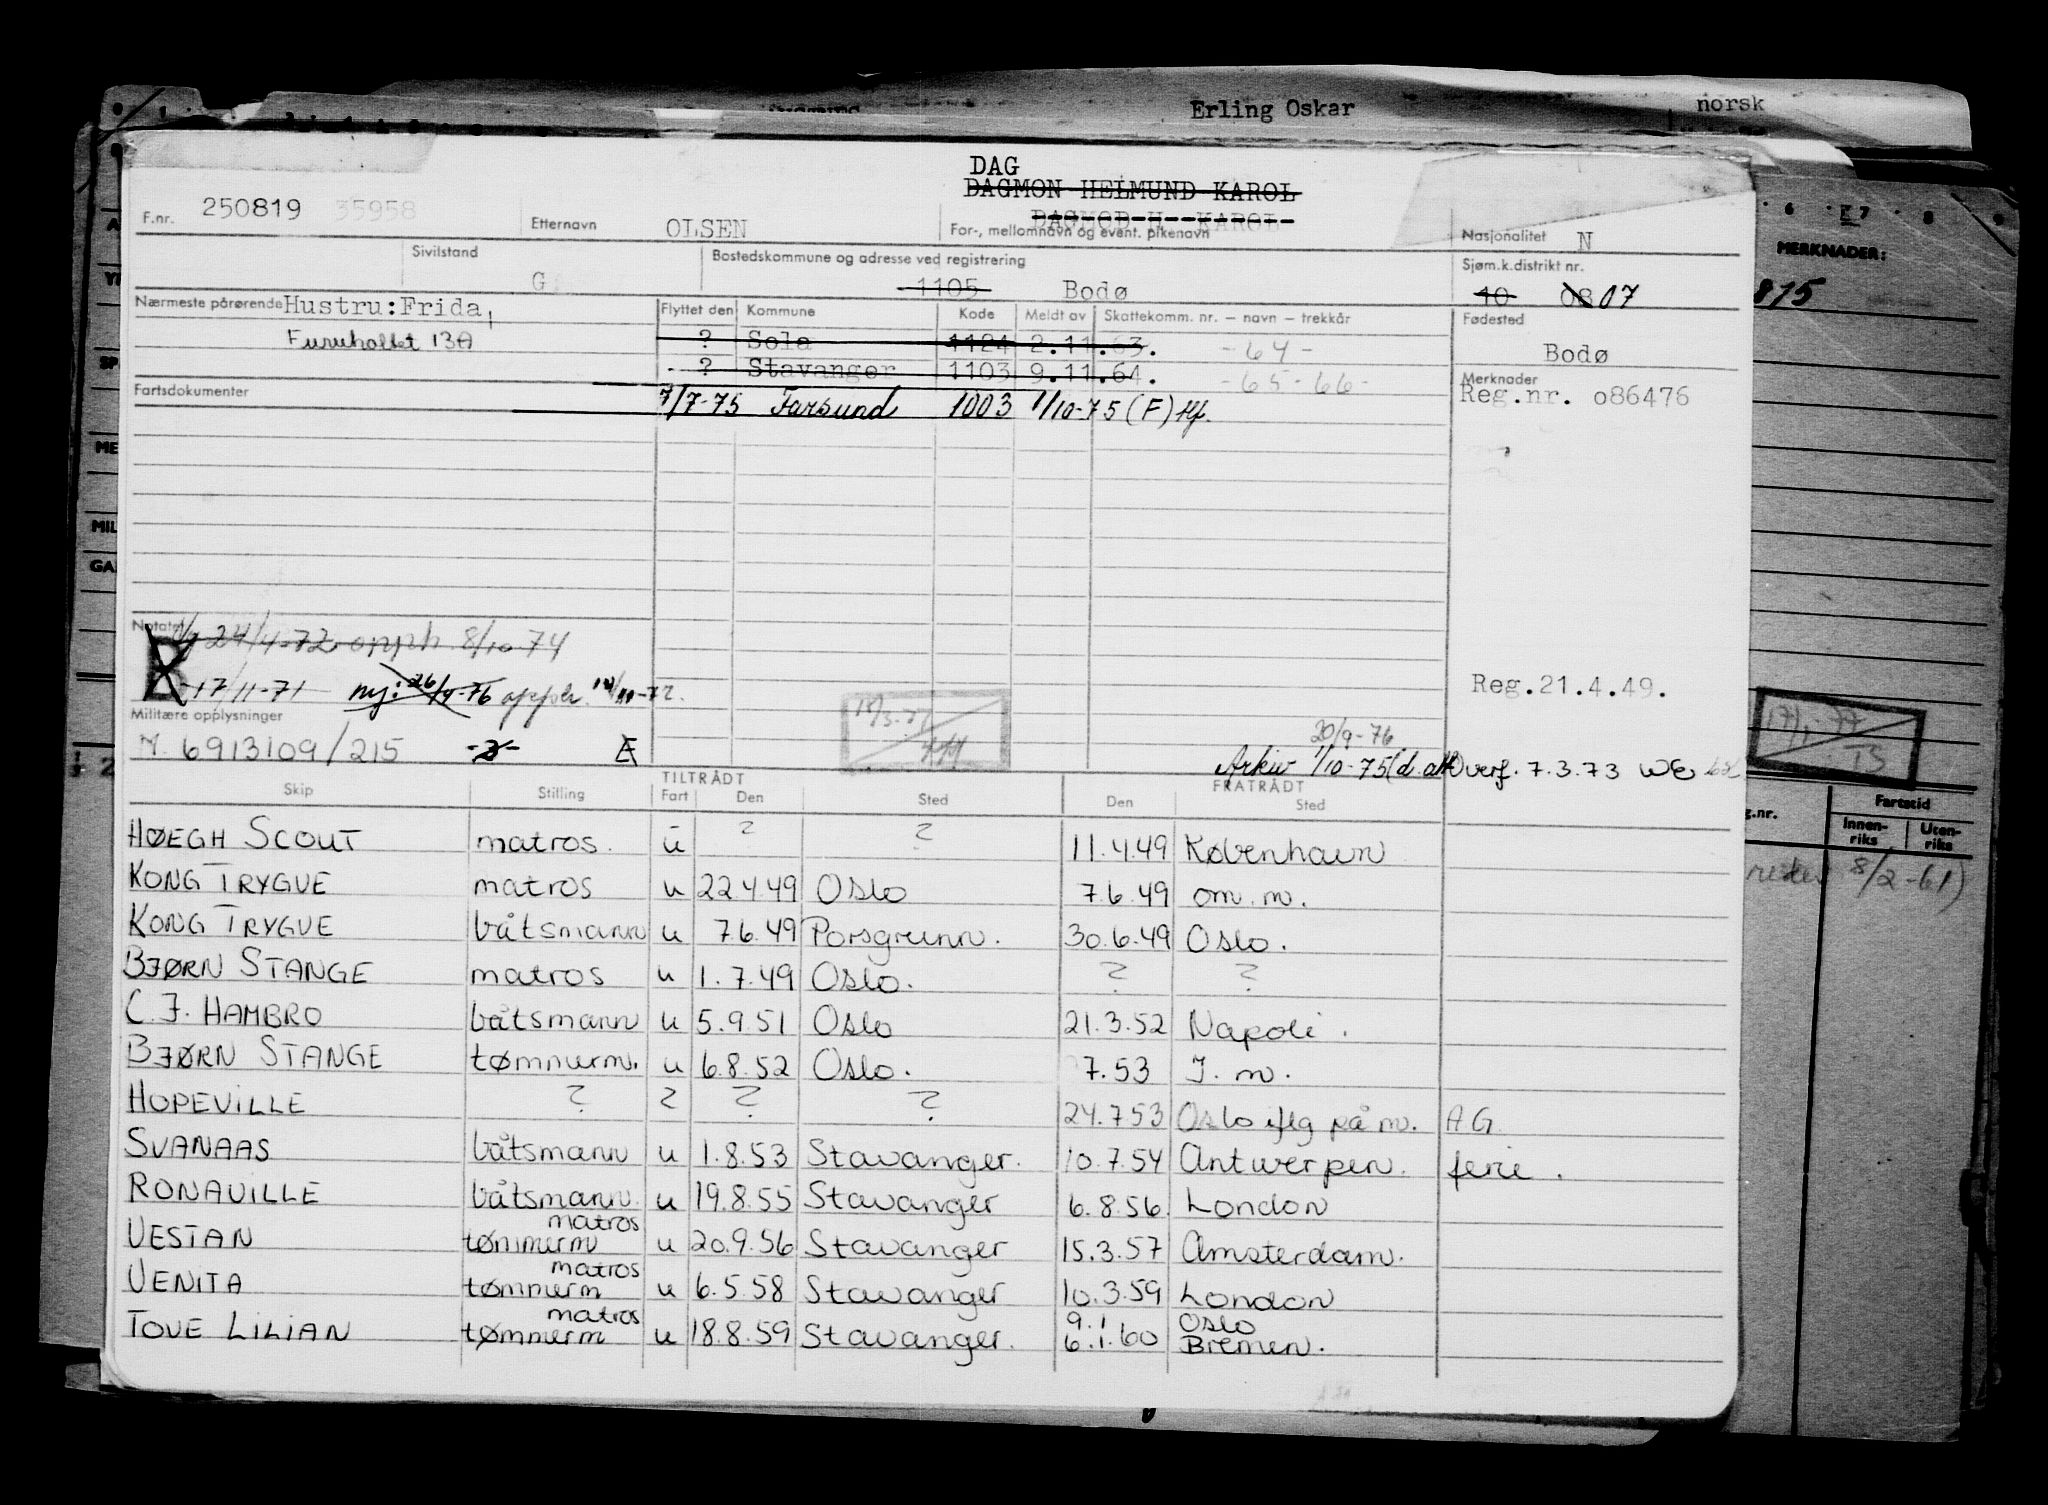 Erling Oskar norsk
DAG
DAGMON HELMUND KAROL
DAGMOD H. KAROL
F.nr. 250819 35958 Etternavn OLSEN For-, mellomnavn og event. pikenavn Nasjonalitet N
MERKNADER:
Sivilstand G Bostedskommune og adresse ved registrering 1105 Bodø Sjøm.k.distrikt nr. 10 08 07
815
Nærmeste pårørende Hustru: Frida,
Furuhollet 13A
Flyttet den Kommune Kode Meldt av Skattekomm. nr. – navn – trekkår Fødested
? Sola 1124 2.11.63. -64- Bodø
? Stavanger 1103 9.11.64. -65-66- Merknader
Fartsdokumenter 7/7-75 Farsund 1003 1/10-75 (F) Reg.nr. o86476
Notater
24/4-72 opph 8/10 74
17/11-71 ny: 26/9-76 opph.
Reg.21.4.49.
Militære opplysninger
M. 6913109/215
20/9-76
Arkiv 1/10-75 Overf. 7.3.73
17/1-77
TS
Skip Stilling TILTRÅDT Fart Den Sted FRATRÅDT Den Sted
g.nr. Fartstid
Innen-riks Uten-riks
8/2-61)
HØEGH SCOUT matros. u ? ? 11.4.49 København
KONG TRYGVE matros u 22.4.49 Oslo 7.6.49 om. m.
KONG TRYGVE båtsmann u 7.6.49 Porsgrunn. 30.6.49 Oslo.
BJØRN STANGE matros u 1.7.49 Oslo. ? ?
C. J. HAMBRO båtsmann u 5.9.51 Oslo 21.3.52 Napoli.
BJØRN STANGE tømmerm. u 6.8.52 Oslo. 7.53 I. m.
HOPEVILLE ? ? ? ? 24.7.53 Oslo iflg på m. AG
SVANAAS båtsmann u 1.8.53 Stavanger. 10.7.54 Antwerpen. ferie.
RONAVILLE båtsmann. u 19.8.55 Stavanger 6.8.56. London
matros
VESTAN tømmerm u 20.9.56 Stavanger 15.3.57 Amsterdam.
matros
VENITA tømmerm u 6.5.58 Stavanger 10.3.59 London
matros 9.1 Oslo
TOVE LILIAN tømmerm u 18.8.59 Stavanger. 6.1.60 Bremen.